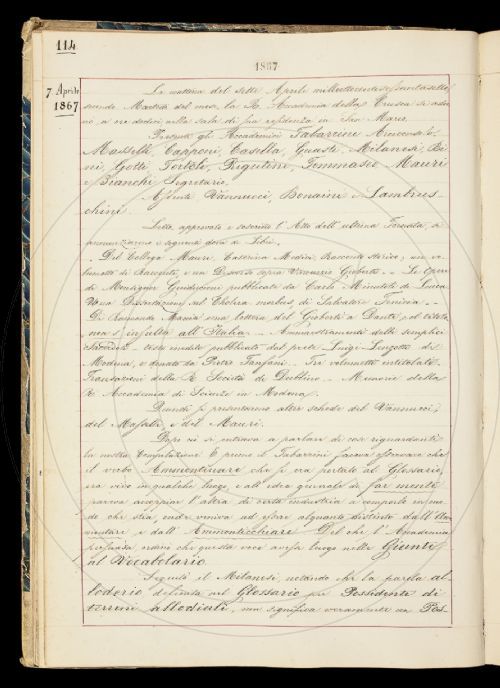 114
1867
7. Aprile
1867
La mattina del sette Aprile milleottocentosessantasette
secondo Martedì del mese, la R. Accademia della Crusca si adu-
nò a ore dodici nella sala di sua residenza in San Marco.
Presenti gli Accademici Tabarrini Arciconsolo,
Masselli, Capponi, Casella, Guasti, Milanesi, Bi-
ni, Gotti, Tortoli, Rigutini, Tommaseo, Mauri
e Bianchi Segretario.
Assenti Vannucci, Bonaini e Lambrus-
chini.
Letto, approvato e sottoscritto l'Atto dell'ultima Tornata, si
annunziarono i seguenti doni di Libri.
Del Collega Mauri, Caterina Medici, Racconto storico; un vo-
lumetto di Racconti, e un Discorso sopra Vincenzo Gioberti. — Le Opere
di Monsignor Guidiccioni pubblicate da Carlo Minutoli di Lucca
Una Dissertazione sul Cholera morbus, di Salvatore Tenisia. —
Di una lettera del Gioberti a Dante, ed
non s'insulta all'Italia. — Ammaestramento delle semplici
testo inedito pubblicato dal prete Luigi di
Modena, e donato da Pietro Fanfani. — Tre volumetti intitolati
Transazioni della R. Società di Dublino. — Memorie della
R. Accademia di Scienze in Modena.
Quindi si presentarono altre schede del Vannucci,
del e del Mauri.
Dopo ciò si entrava a parlare di cose riguardanti
la nostra Compilazione. E primo il Tabarrini faceva osservare che
il verbo Ammonticinare che si era portato al Glossario,
era vivo in qualche luogo, e all'idea generale di far monte
pareva accoppiar l'altra di certa industria a comporlo in mo-
do che stia, onde veniva ad essere alquanto distinto dall'Am-
montare e dall'Ammonticchiare. Del che l'Accademia
persuasa ordinò che questa voce avesse luogo nelle Giunte
al Vocabolario.
Seguitò il Milanesi notando che la parola al-
loderio definita nel Glossario per Possidente di
terreni allodiali, non significa veramente un Pos-